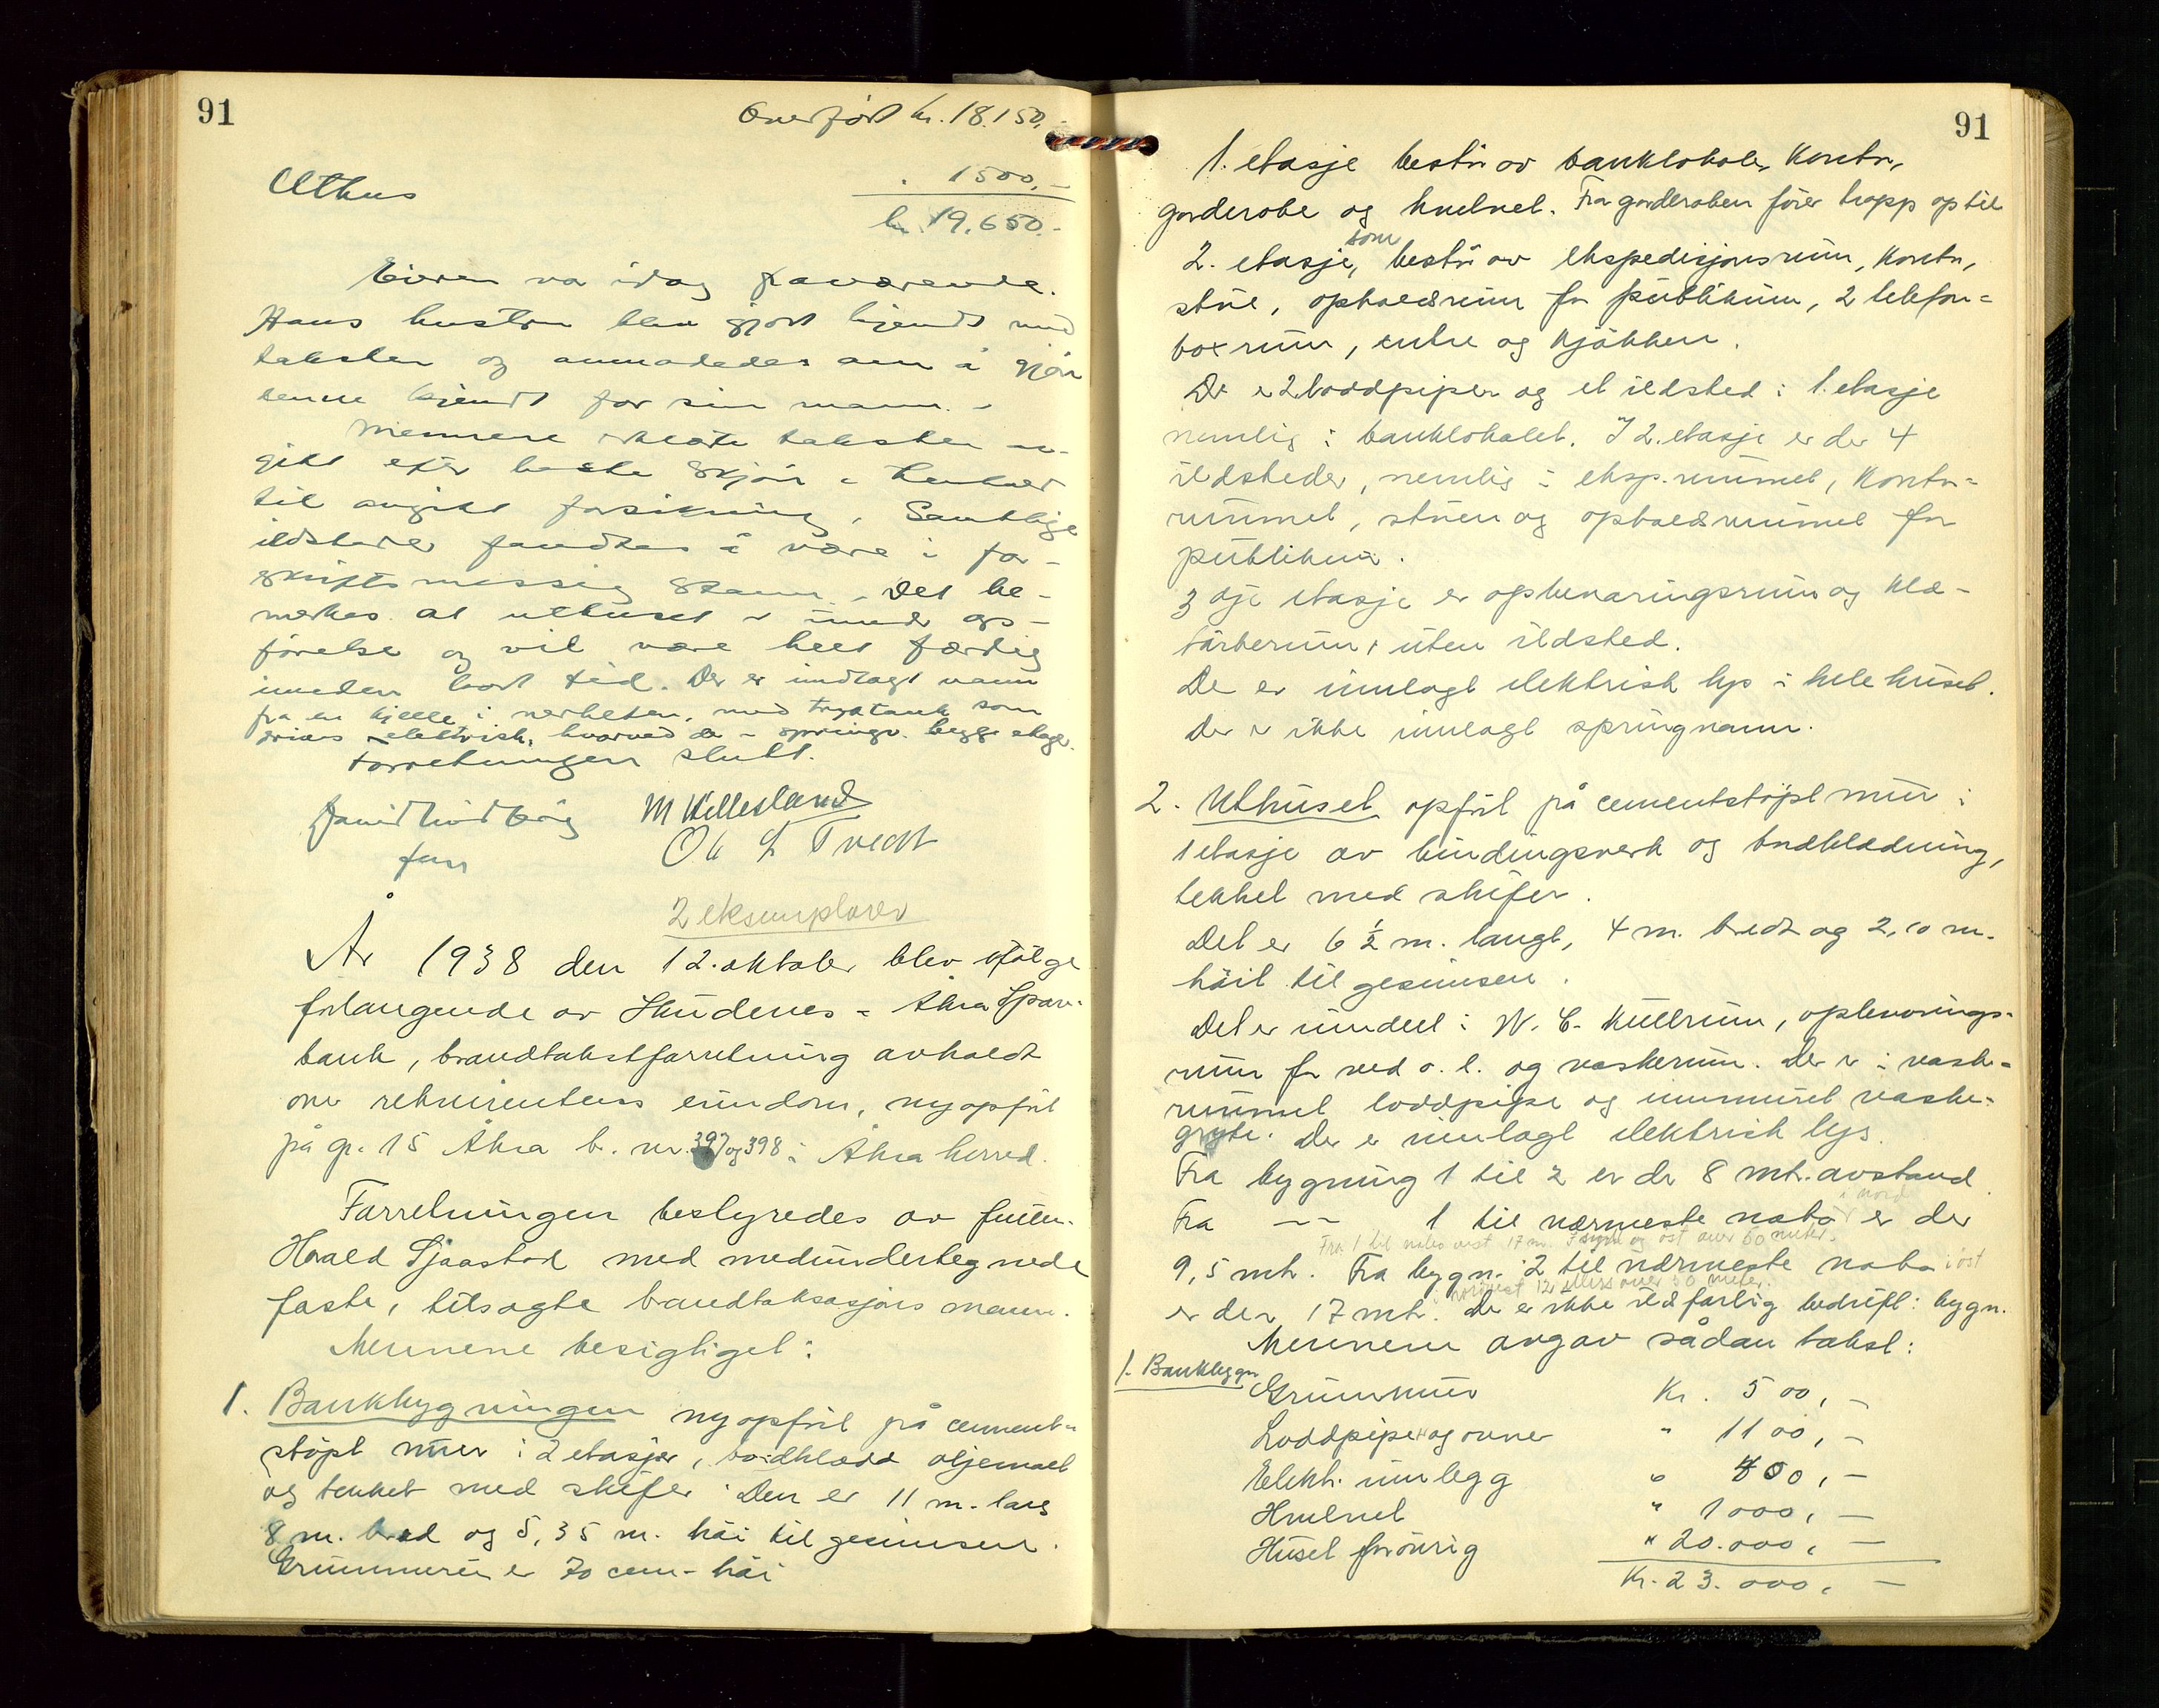 91
Overført kr. 18.150,-
Uthus
1500,-
kr. 19.650.-
Eieren var idag fraværende.
Hans hustru blev gjort kjendt med
taksten og anmodedes om å gjøre
denne kjendt for sin mann. -
Mennene erklærte taksten av-
gitt efter beste skjøn i henhold
til avgitt forsikring. Samtlige
ildsteder fandtes å være i for-
skriftsmessig stann. Det be-
merkes at uthuset er under op-
førelse og vil være helt færdig
innen kort tid. Der er indlagt vann
fra en kjelle i nerheten, med tryktank som
drives elektrisk, hvorved der er springv. begge etager.
Forretningen slutt.
M Hillesland
Ol L Tvedt
2 eksemplarer
År 1938 den 12. oktober blev ifølge
forlangende av Skudenes - Åkra Spare-
bank, brandtakstforretning avholdt
over rekvirentens eiendom, nyopført
på gr. 15 Åkra b. nr. 397 og 398 i Åkra herred.
Forretningen bestyredes av fullm.
Harald Sjaastad med medundertegnede
faste, tilsagte brandtaksasjons menn.
Mennene besigtiget:
1. Bankbygningen nyopført på cement-
støpt mur i 2 etasjer, bordklædd oljemalt
og tekket med skifer. Den er 11 m. lang
8 m. bred og 5,35 m. høi til gesimsen.
Grunnmuren er 70 cem. høi
91
1. etasje består av banklokale, kontor,
garderobe og hvelvet. Fra garderoben fører trapp op til
2. etasje, som består av ekspedisjonsrum, kontor,
stue, opholdsrum for publikum, 2 telefon-
boxrum, entre og kjøkken.
Der er 2 loddpiper og et ildsted i 1. etasje
nemlig i banklokalet. I 2. etasje er der 4
ildsteder, nemlig i eksp.rummet, kontor-
rummet, stuen og opholdsrummet for
publikum.
3 dje etasje er opbevaringsrum og klæ-
tørkerum, uten ildsted.
Der er innlagt elektrisk lys i hele huset.
Der er ikke innlagt springvann.
2. Uthuset opført på cementstøpt mur i
1 etasje av bindingsverk og bordklædning,
tekket med skifer.
Det er 6 1/2 m. langt, 4 m. bredt og 2,10 m.
høit til gesimsen.
Det er inndelt i W. C. kullrum, opbevarings-
rum for ved o. l. og vaskerum. Der er i vask-
rummet loddpipe og innmuret vaske-
gryte. Der er innlagt elektrisk lys.
Fra bygning 1 til 2 er der 8 mtr. avstand.
Fra -"- 1 til nærmeste nabo i nord er der
Fra 1 til nabo vest 17 m. I syd og øst over 50 meter.
9,5 mtr. Fra bygn. 2 til nærmeste nabo i øst
nordvest 12 ellers over 50 meter.
er der 17 mtr. Der er ikke ildfarlig bedrift i bygn.
Mennene avgav sådan takst:
1. Bankbygn.
Grunnmur Kr. 500,-
Loddpiper og ovner " 1100,-
Elektr. innlegg " 400,-
Hvelvet " 1000,-
Huset forøvrig " 20.000,-
Kr. 23.000,-